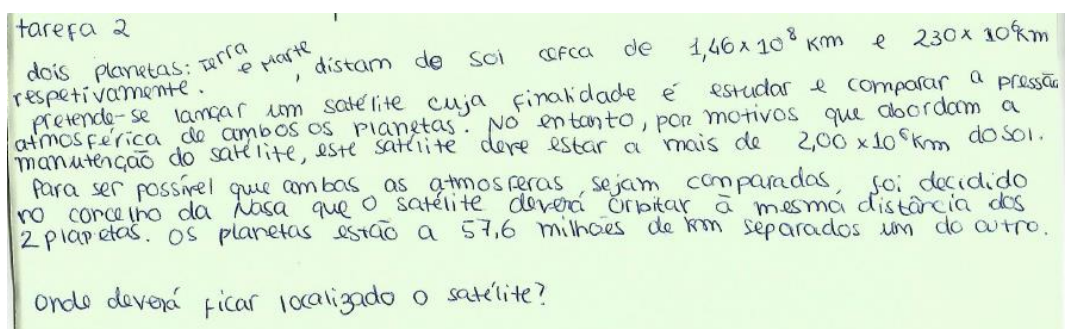 tarefa 2
dois planetas: terra e marte, distam do sol cerca de 1,46 x 10⁸ Km e 230 x 10⁶ km
respetivamente.
pretende-se lançar um satélite cuja finalidade é estudar e comparar a pressão
atmosférica de ambos os planetas. No entanto, por motivos que abordam a
manutenção do satélite, este satélite deve estar a mais de 2,00 x 10⁸ km do sol.
Para ser possível que ambas as atmosferas, sejam comparadas, foi decidido
no concelho da Nasa que o satélite deverá orbitar à mesma distância dos
2 planetas. Os planetas estão a 57,6 milhões de km separados um do outro.
onde deverá ficar localizado o satélite?